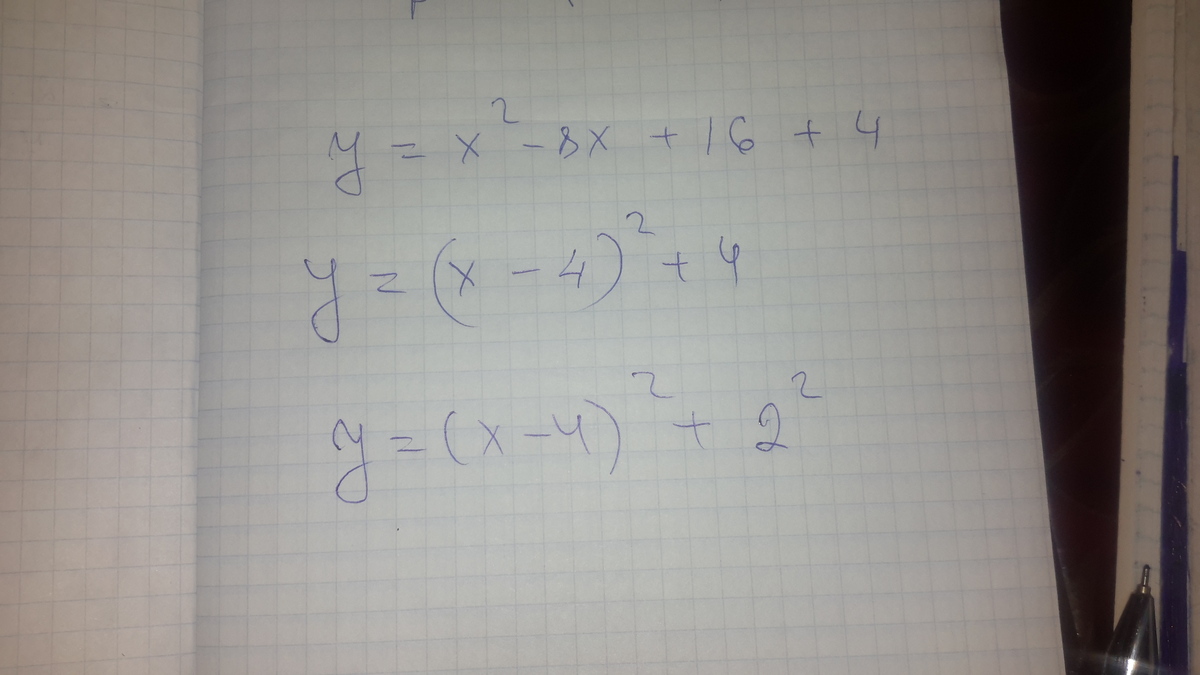 y = x² - 8x + 16 + 4
y = (x - 4)² + 4
y = (x - 4)² + 2²